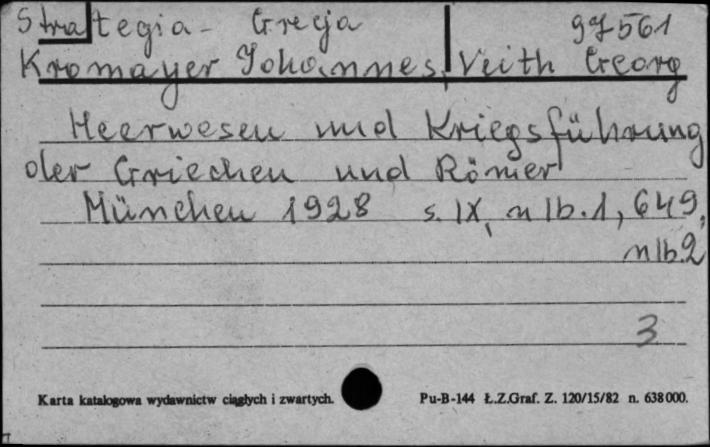 Strategia - Grecja 97561
Kromayer Johannes, Veith Georg
Heerwesen und Kriegsführung
der Griechen und Römer
München 1928 s. IX, nlb. 1, 649,
nlb. 2
3
Karta katalogowa wydawnictw ciągłych i zwartych. Pu-B-144 Ł.Z.Graf. Z. 120/15/82 n. 638000.